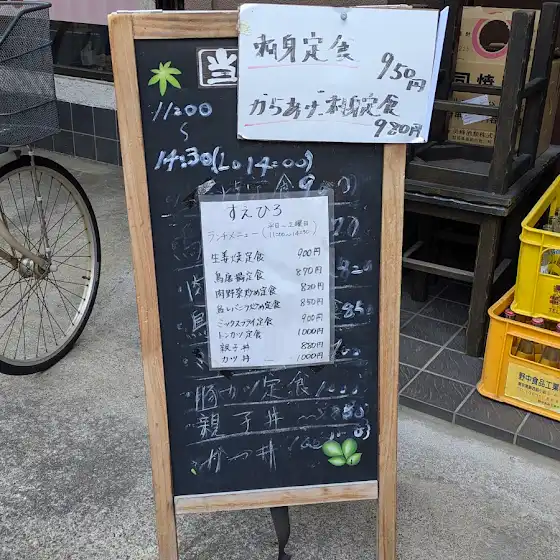 刺身定食
950円
からあげ刺身定食
980円
当
11:00
～
14:30(Lo 14:00)
すえひろ
ランチメニュー (平日〜土曜日
11:00〜14:30)
生姜焼定食 900円
鳥唐揚定食 870円
肉野菜炒め定食 820円
鳥レバニラ炒め定食 850円
ミックスフライ定食 900円
トンカツ定食 1000円
親子丼 880円
カツ丼 1000円
豚カツ定食
親子丼〜880
かつ丼
野中食品工業